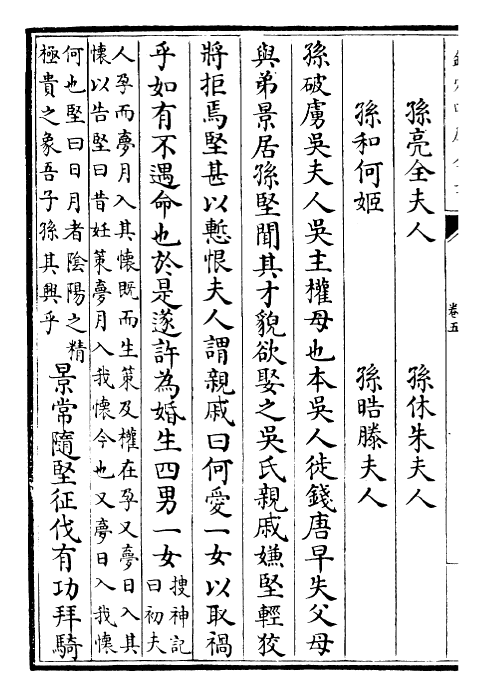 孫亮全夫人　孫休朱夫人
孫和何姬　孫皓滕夫人
孫破虜吳夫人吳主權母也本吳人徙錢唐早失父母
與弟景居孫堅聞其才貌欲娶之吳氏親戚嫌堅輕狡
將拒焉堅甚以慙恨夫人謂親戚曰何愛一女以取禍
乎如有不遇命也於是遂許為婚生四男一女
搜神記
曰初夫
人孕而夢月入其懷既而生策及權在孕又夢日入其
懷以告堅曰昔妊策夢月入我懷今也又夢日入我懷
何也堅曰日月者陰陽之精
極貴之象吾子孫其興乎
景常隨堅征伐有功拜騎
卷五